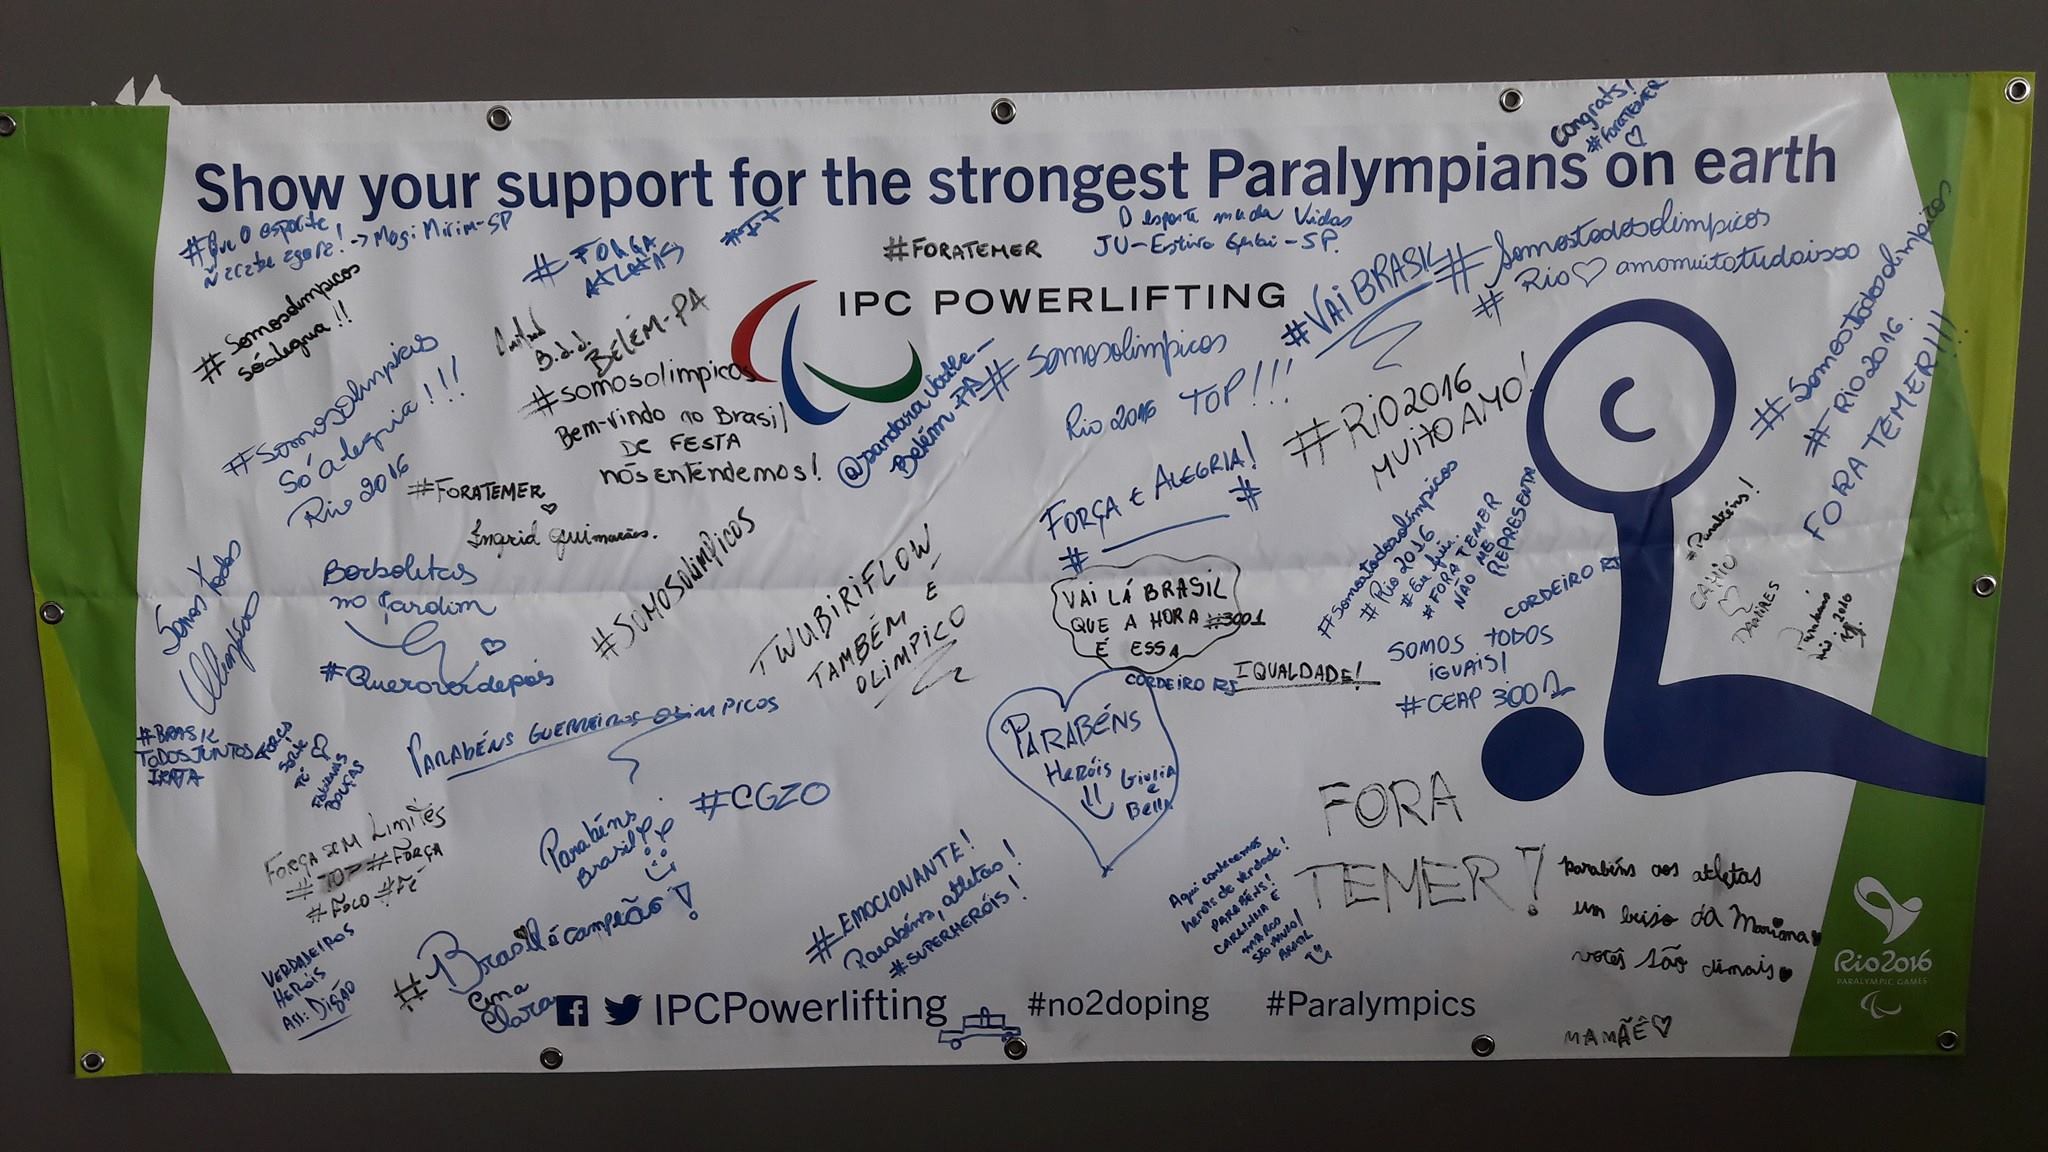 Congrats!
#FORATEMER
Show your support for the strongest Paralympians on earth
#Que o esporte
Mogi Mirim-SP
#FORÇA
ATLETAS
#FORATEMER
O esporte muda Vidas
#VAI BRASIL
#Somostodosolimpicos
#Rio♡amomuitotudoisso
#Somosolimpicos
sóalegria!!
BELÉM-PA
IPC POWERLIFTING
#Somosolimpicos
Só alegria!!!
Rio 2016
#somosolimpicos
Bem-vindo no Brasil
DE FESTA
nós entendemos!
Belém-PA
#somosolimpicos
Rio 2016 TOP!!!
#RIO2016
MUITO AMO!
#Somostodosolimpicos
#Rio2016.
FORA TEMER!!!
#FORATEMER
Ingrid Guimarães.
FORÇA E ALEGRIA!
#
#
#Somostodosolimpicos
#Rio 2016
#Eu fui.
#FORA TEMER
NÃO ME
REPRESENTA
#Parabéns!
CAHIO
Somos todos
Olímpico
Borboletas
no jardim
#Querovordepois
#SOMOSOLIMPICOS
TWUBIRIFLOW
TAMBÉM É
OLIMPICO
VAI LÁ BRASIL
QUE A HORA #3001
É ESSA
CORDEIRO RJ
IQUALDADE!
CORDEIRO RJ
SOMOS TODOS
IGUAIS!
#CEAP 3001
#BRASIL
TODOS JUNTOS
PARABÉNS GUERREIROS OLIMPICOS
PARABÉNS
Heróis
Giulia
e
Bella
#CGZO
Parabéns
Brasil
FORÇA SEM LIMITES
#TOP #FORÇA
#FOCO #FÉ
VERDADEIROS
HERÓIS
ASS: DIGÃO
#Brasil é campeão!
Clara
#EMOCIONANTE!
Parabéns, atletas!
#SUPERHERÓIS!
Aqui conhecemos
heróis de verdade!
PARABÉNS!
CARLINHA E
MARCO
SÃO PAULO!
BRASIL
FORA
TEMER!
parabéns aos atletas
um beijo da Mariana
vocês são dimais
MAMÃE♡
IPCPowerlifting
#no2doping
#Paralympics
Rio2016
PARALYMPIC GAMES